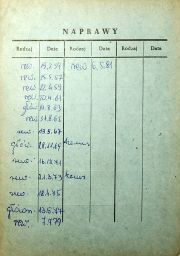 NAPRAWY
Rodzaj Data Rodzaj Data Rodzaj Data
rew. 19.2.54 rew 6.5.81
rew. 15.5.57
rew. 22.4.59
rew. 20.4.61
główn. 11.8.63
rew. 31.8.65
rew. 19.9.67
główn. 28.11.69
rew. 16.12.71
rew. 21.3.73
rew. 18.4.75
główn. 13.5.77
rew. 7.9.79